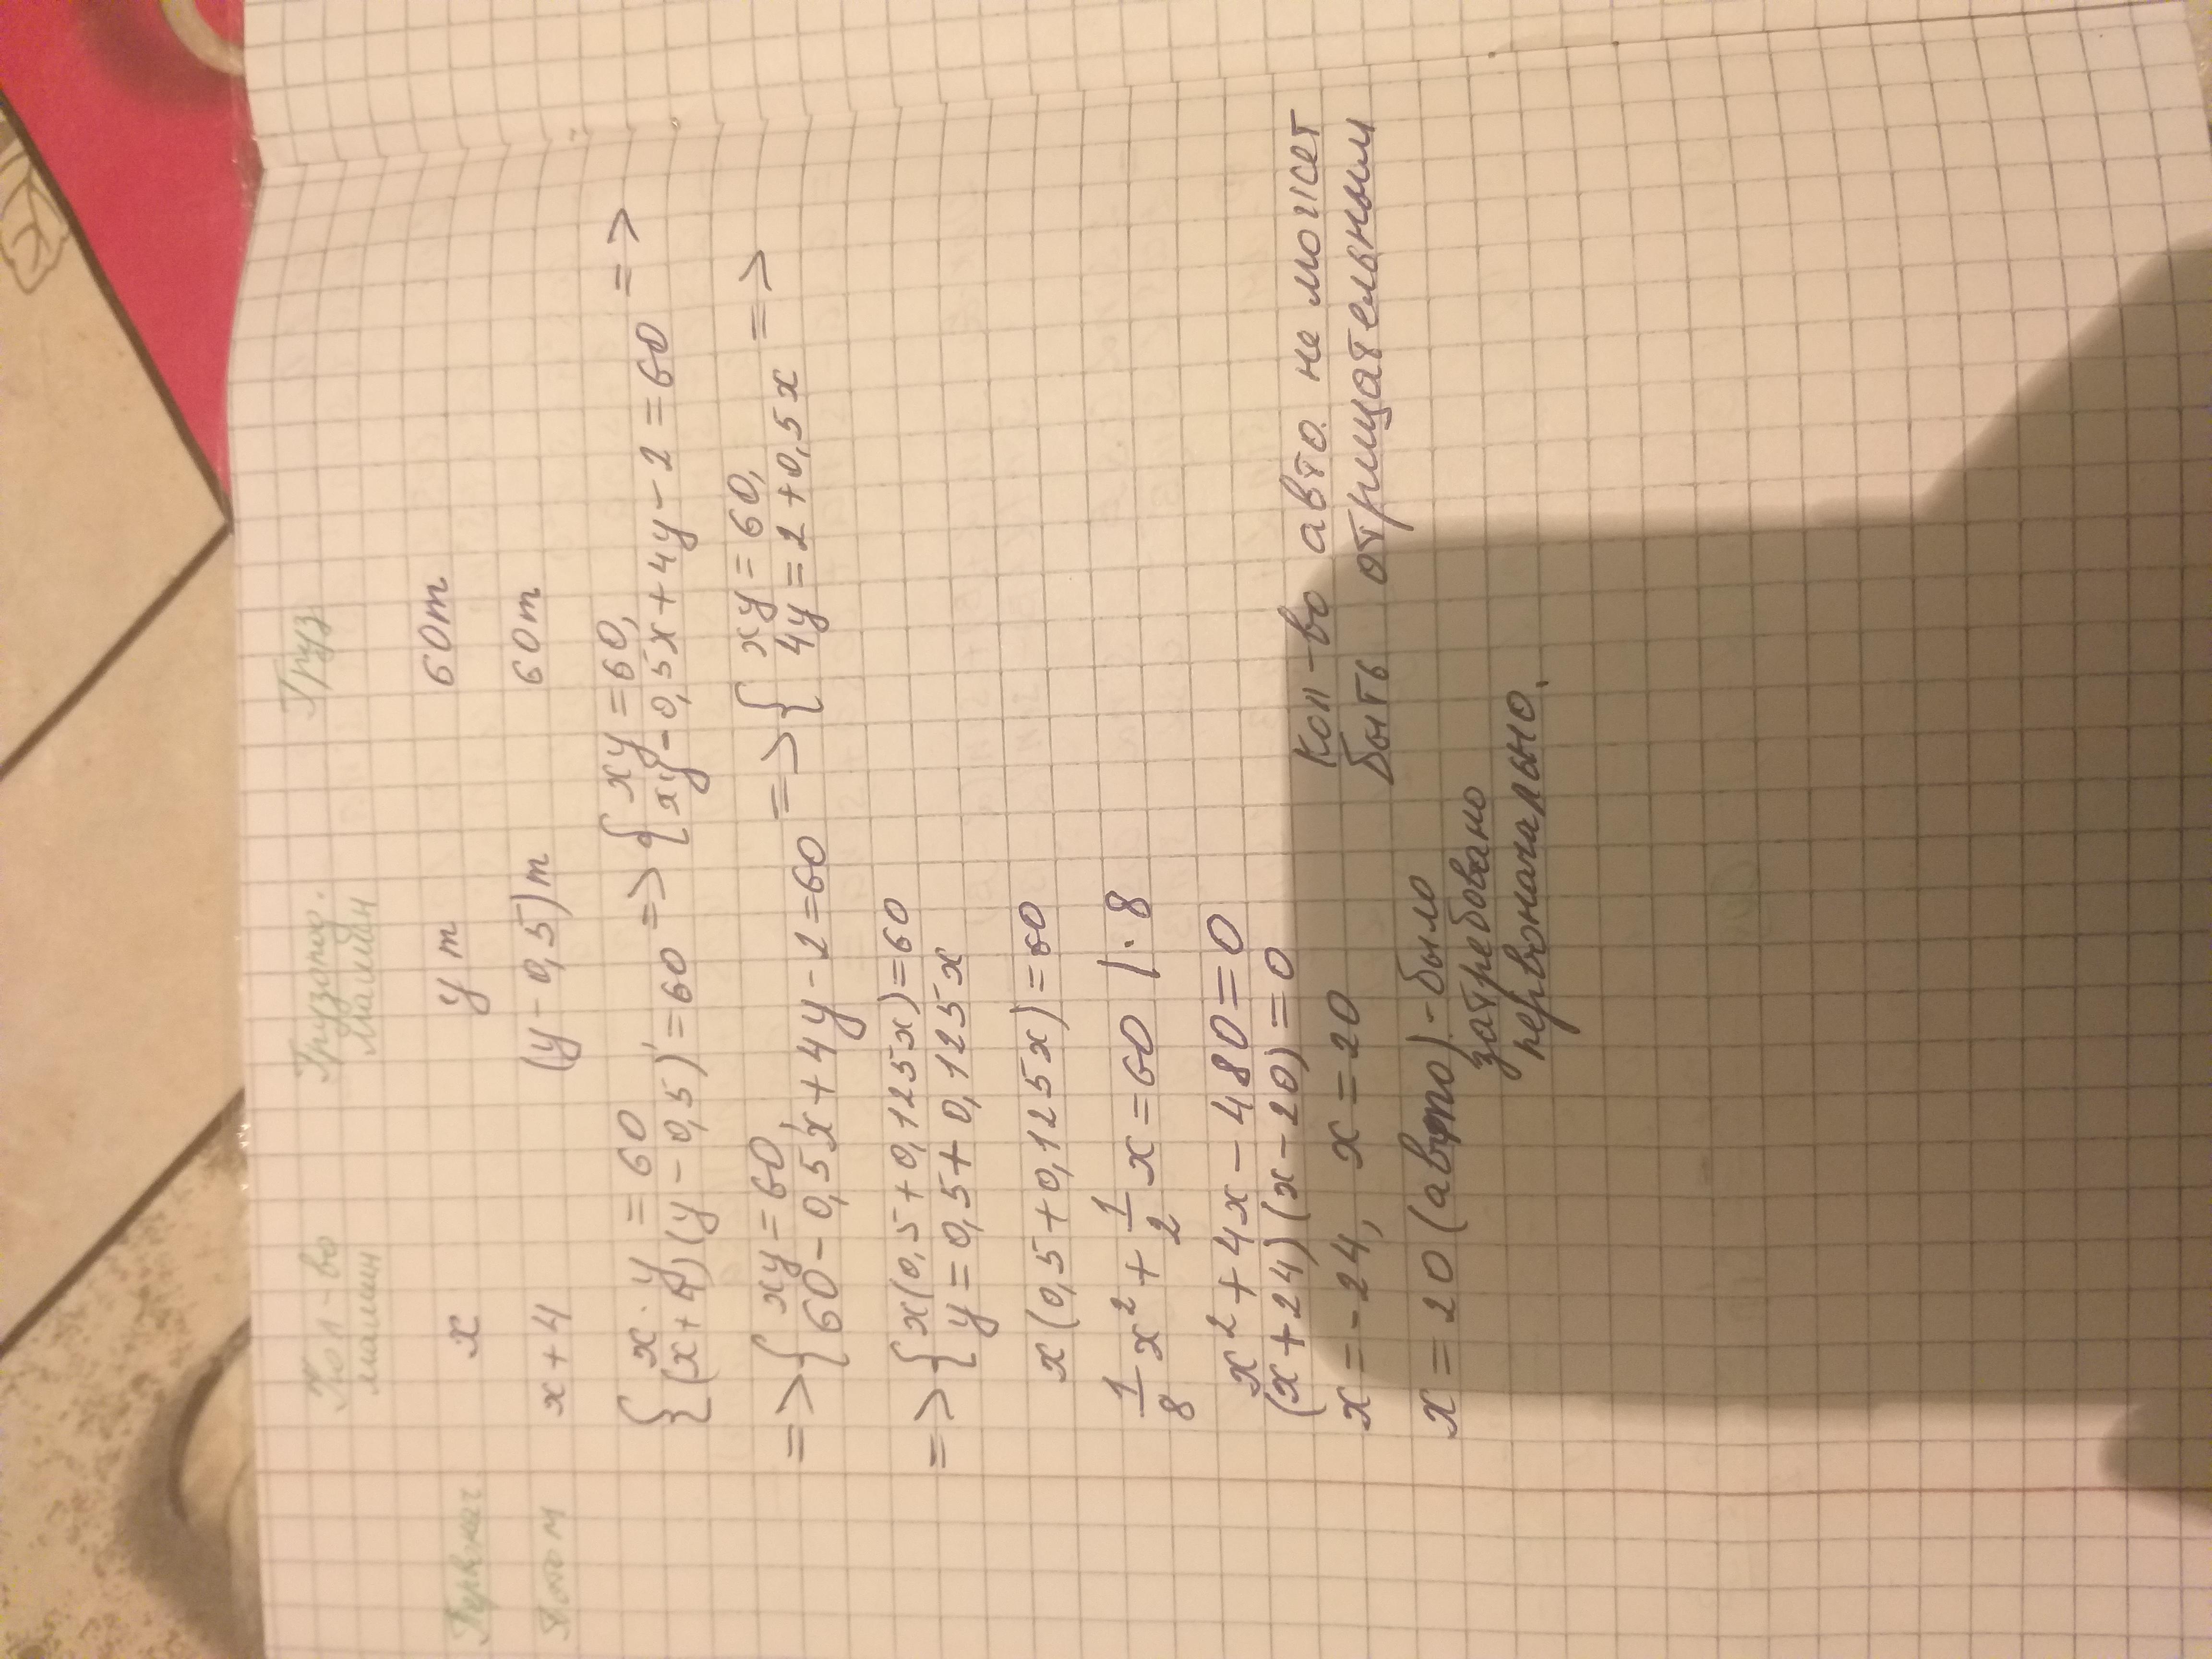 Кол-во Грузопод. Груз
машин машин
Первонач x y т 60т
Потом x+4 (y-0,5)т 60т
{ x·y=60 => { xy=60, =>
(x+4)(y-0,5)=60 xy-0,5x+4y-2=60
=> { xy=60, => { xy=60, =>
60-0,5x+4y-2=60 4y=2+0,5x
=> { x(0,5+0,125x)=60
y=0,5+0,125x
x(0,5+0,125x)=60
1/8 x²+1/2 x=60 |·8
x²+4x-480=0
(x+24)(x-20)=0
x=-24, x=20 Кол-во авто. не может
быть отрицательным
x=20(авто)-было
затребовано
первоначально.